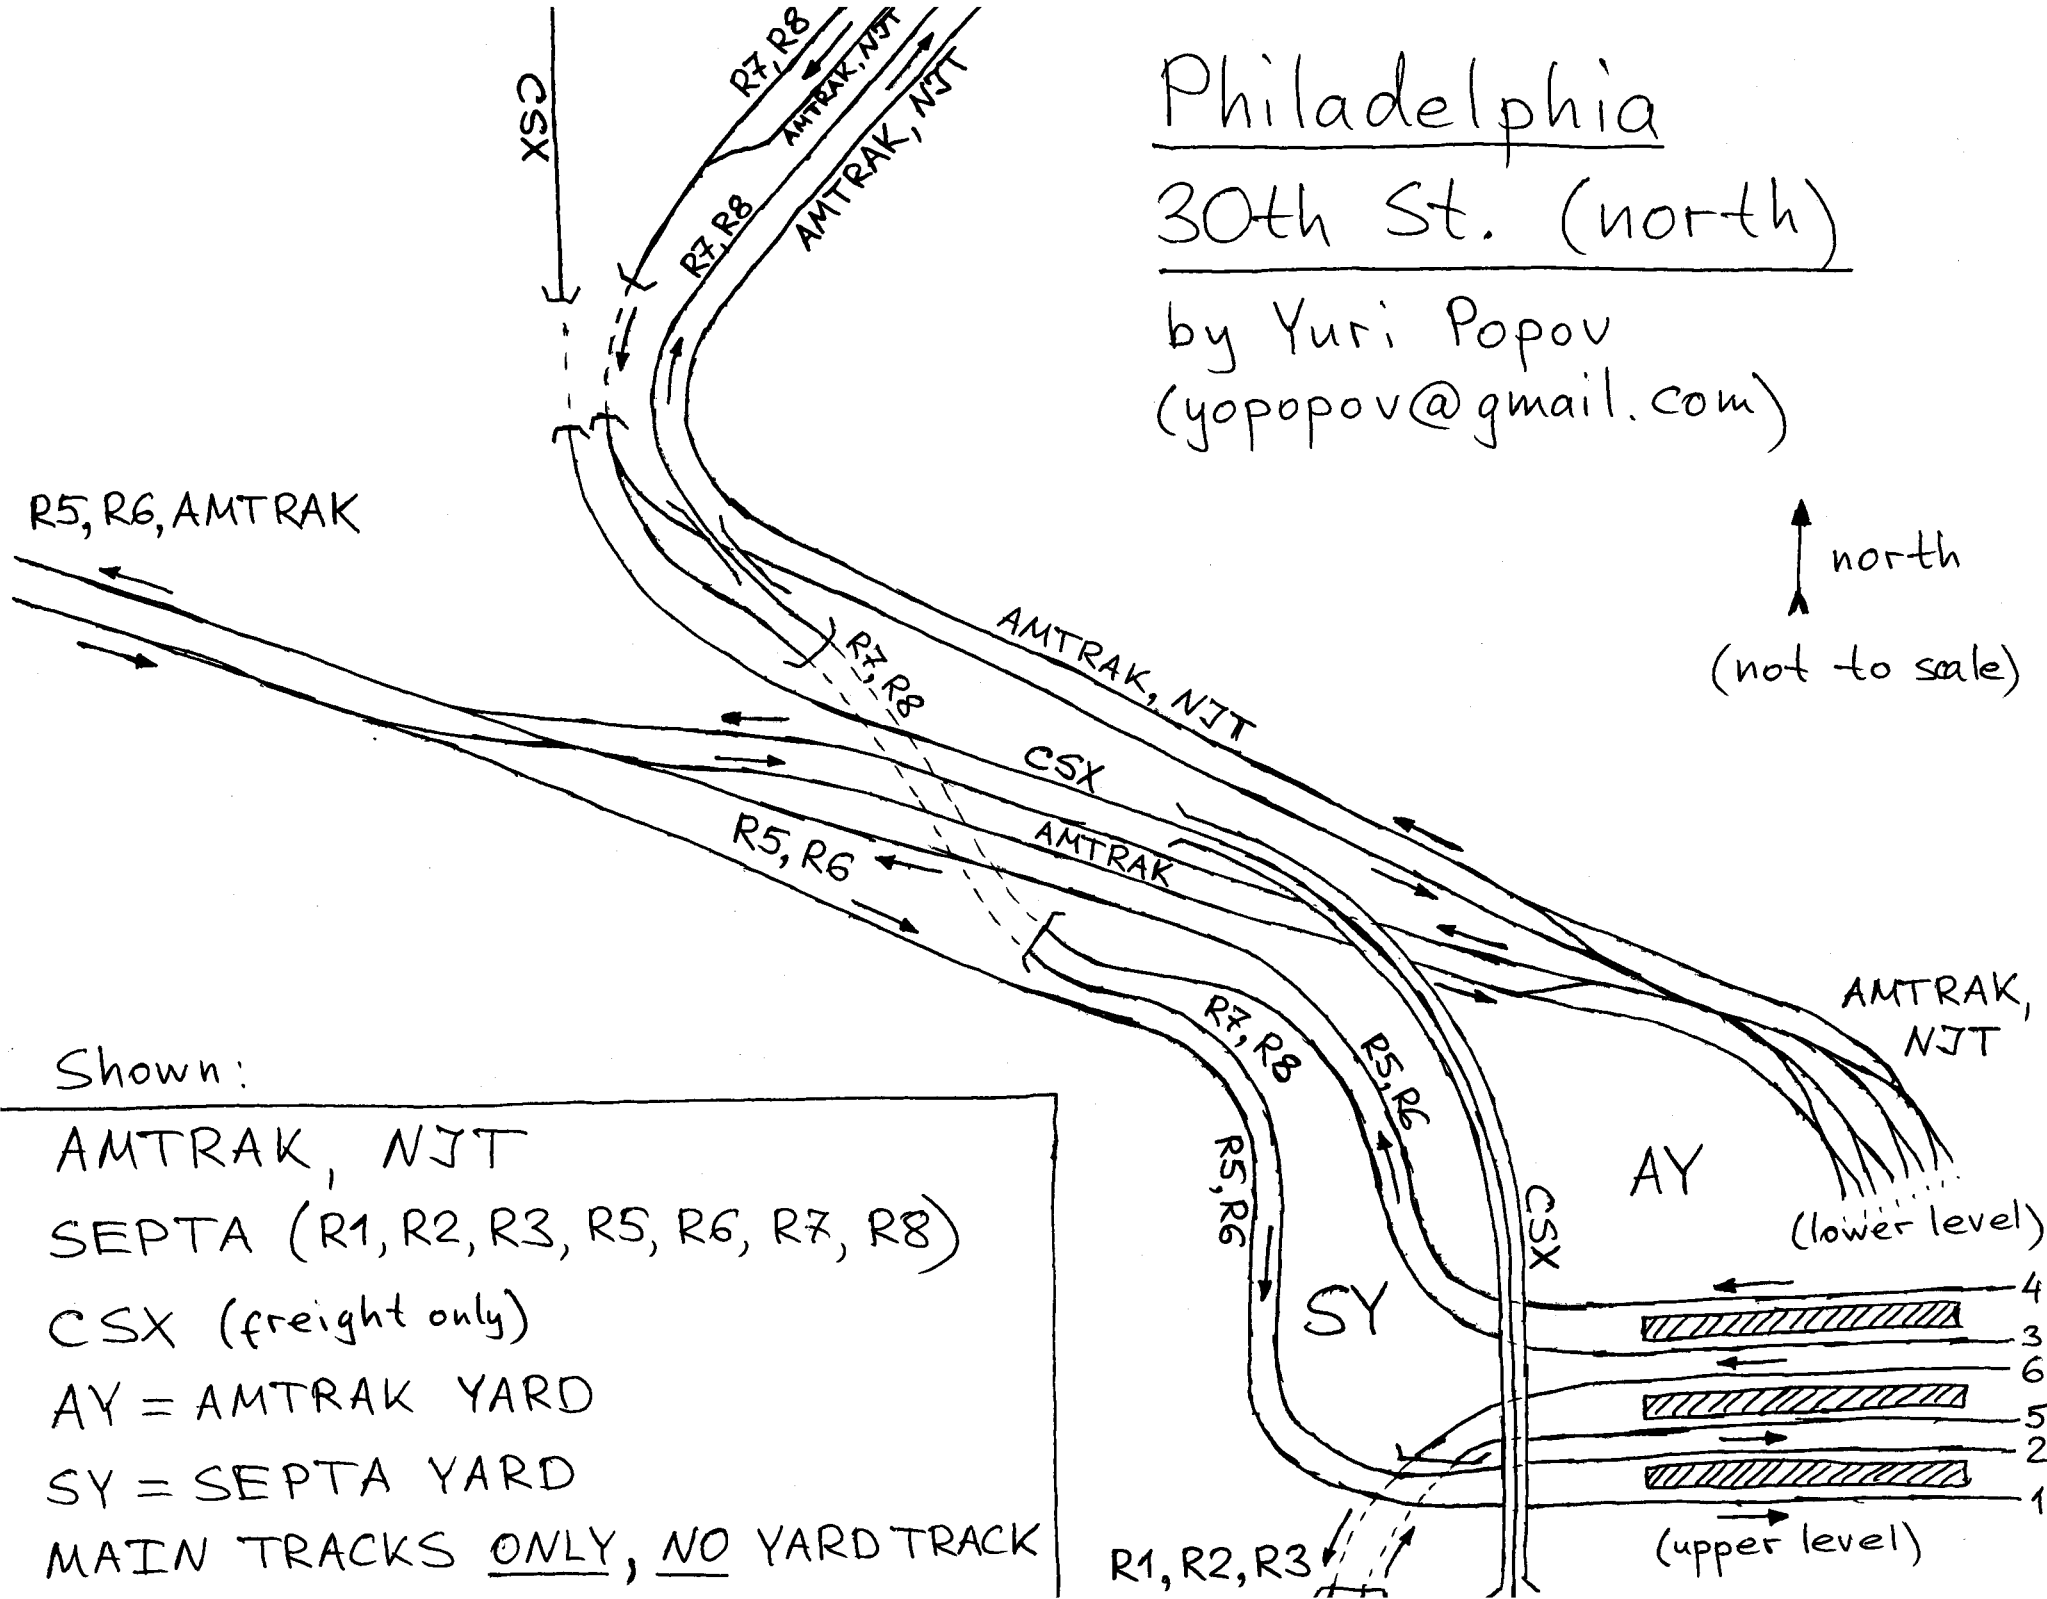 Philadelphia
30th St. (north)
by Yuri Popov
(yopopov@gmail.com)
north
(not to scale)
CSX
R7, R8
AMTRAK, NJT
R7, R8
AMTRAK, NJT
R5, R6, AMTRAK
R7, R8
AMTRAK, NJT
CSX
AMTRAK
R5, R6
R7, R8
R5, R6
R5, R6
CSX
AMTRAK,
NJT
AY
(lower level)
SY
4
3
6
5
2
1
(upper level)
R1, R2, R3
Shown:
AMTRAK, NJT
SEPTA (R1, R2, R3, R5, R6, R7, R8)
CSX (freight only)
AY = AMTRAK YARD
SY = SEPTA YARD
MAIN TRACKS ONLY, NO YARD TRACK